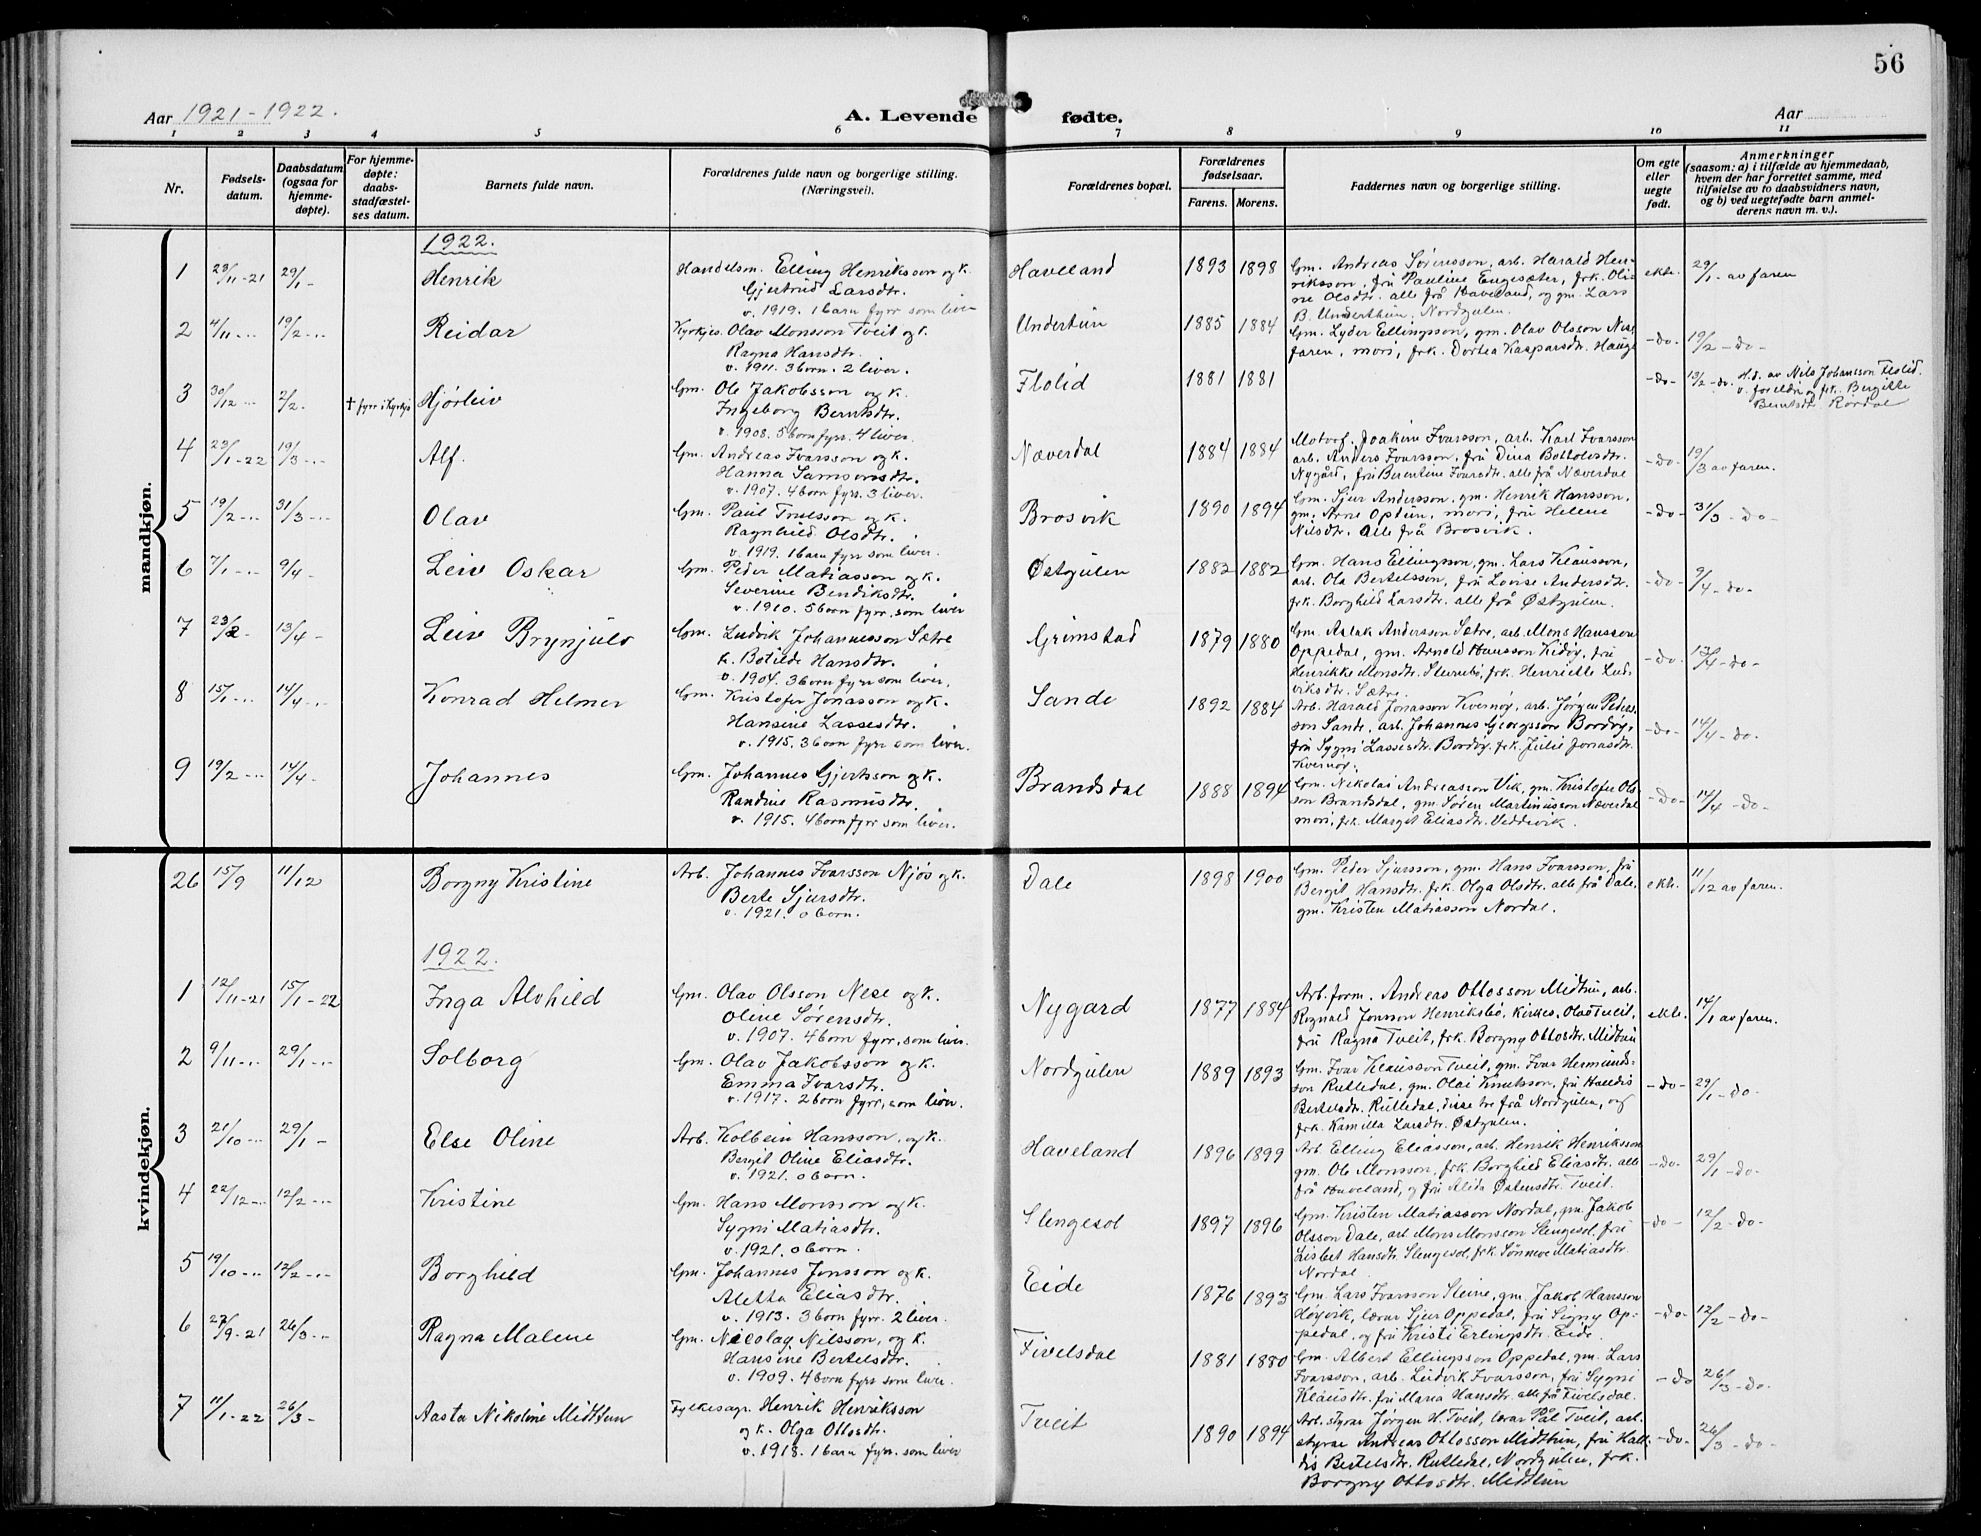 56
Aar 1921-1922.
A. Levende fødte.
Aar
1 2 3 4 5 6 7 8 9 10 11
Nr.
Fødsels-
datum.
Daabsdatum
(ogsaa for
hjemme-
døpte).
For hjemme-
døpte:
daabs-
stadfæstel-
ses datum.
Barnets fulde navn.
Forældrenes fulde navn og borgerlige stilling.
(Næringsvei).
Forældrenes bopæl.
Forældrenes
fødselsaar.
Farens. Morens.
Faddernes navn og borgerlige stilling.
Om egte
eller
uegte
født.
Anmerkninger
(saasom: a) i tilfælde av hjemmedaab,
hvem der har forrettet samme, med
tilføielse av to daabsvidners navn,
og b) ved uegtefødte barn anmel-
derens navn m. v.).
mandkjøn.
1922.
1 23/11-21 29/1- Henrik
Handelsm. Elling Henriksson og k.
Gjertrud Larsdtr.
v. 1919. 1 barn fyrr som liver
Haveland 1893 1898
Gm. Andreas Sørensson, arb. Harald Hen-
riksson, frú Pauline Engesæter, frk. Oli-
ne Olsdtr. alle frå Haveland, og gm. Lars
B. Underthun, Nordgulen.
ekte. 29/1- av faren
2 4/11-.. 19/2-.. Reidar
Kyrkjes. Olav Monsson Tveit og k.
Ragna Hansdtr.
v. 1911. 3 born. 2 liver.
Undertun 1885 1884
Gm. Lyder Ellingsson, gm. Olav Olsson Nese,
faren, mori, frk. Dortea Kaspersdtr. Hauge
-do- 19/2-do-
3 30/12-.. 2/2. † fyrr i kyrkja Hjørleiv
Gm. Ole Jakobsson og k.
Ingeborg Berntsdtr.
v. 1908. 5 born fyrr. 4 liver.
Flolid 1881 1881
-do- 13/2-do. H.d. av Nils Johansson Flolid.
v. foreldri og frk. Bergitte
Berntsdtr. Rørdal
4 23/1-22 19/3-.. Alf.
Gm. Andreas Ivarsson og k.
Hanna Samsonsdtr.
v. 1907. 4 born fyrr. 3 liver.
Næverdal 1884 1884
Motorf. Joakim Ivarsson, arb. Karl Ivarsson
arb. Anders Ivarsson, frú Dina Bottolvsdtr.
Nygård, frú Berentine Ivarsdtr. alle frå Næverdal
-do- 19/3 av faren.
5 19/2-.. 31/3-.. Olav
Gm. Paul Truelsson og k.
Ragnhild Olsdtr.
v. 1919. 1 barn fyrr som liver.
Brosvik 1890 1894
Gm. Sjur Andersson, gm. Henrik Hansson,
gm. Arne Optun, mori, frú Helene
Nilsdtr. alle frå Brosvik.
-do- 31/3-do-
6 7/1-.. 9/4- Leiv Oskar
Gm. Peder Matiasson og k.
Severine Bendiksdtr.
v. 1910. 5 born fyrr. som liver
Østgulen 1882 1882
Gm. Hans Ellingsson, gm. Lars Klausson,
arb. Ola Bertelsson, frú Lovise Andersdtr.
frk. Borghild Larsdtr. alle frå Østgulen.
-do- 9/4-do-
7 23/2- 13/4- Leiv Brynjulv
Gm. Ludvik Johannesson Sætre
k. Botilde Hansdtr.
v. 1904. 3 born fyrr som liver.
Grimstad 1879 1880
Gm. Aslak Andersson Sætre, arb. Mons Hansson
Oppedal, gm. Arnold Hansson Kidøy, frú
Henrikke Monsdtr. Stenebø, frk. Henriette Lud-
viksdtr. Sætre.
-do- 13/4-do-
8 15/1-.. 14/4-.. Konrad Helmer
Gm. Kristofer Jonasson og k.
Hansine Lassesdtr.
v. 1915. 3 born fyrr som liver.
Sande 1892 1884
Arb. Harald Jonasson Kvernøy, arb. Jørgen Peders-
son Sande, arb. Johannes Georgsson Bordøy,
frú Sygni Lassesdtr. Bordøy. frk. Julie Jonasdtr.
Kvernøy.
-do- 14/4-do-
9 19/2-.. 14/4- Johannes
Gm. Johannes Gjertsson og k.
Randine Rasmusdtr.
v. 1915. 4 born fyrr som liver.
Brandsdal 1888 1894
Gm. Nikolai Andreasson Vik, gm. Kristofer Ols-
son Brandsdal, gm. Søren Martinusson Næverdal
mori, frk. Margit Eliasdtr. Veddevik.
-do- 14/4-do-
kvindekjøn.
26 15/9 11/12 Borgny Kristine
Arb. Johannes Ivarsson Njøs og k.
Berte Sjursdtr.
v. 1921. 0 born.
Dale 1898 1900
Gm. Peder Sjursson, gm. Hans Ivarsson, frú
Bergit Hansdtr. frk. Olga Olsdtr. alle frå Dale,
gm. Kristen Matiasson Nordal.
ekt. 11/12 av faren.
1922.
1 12/11-21 15/1-22 Inga Alvhild
Gm. Olav Olsson Nese og k.
Oline Sørensdtr.
v. 1907. 4 born fyrr, som liver.
Nygard 1877 1884
Arb. form. Andreas Ottosson Midttun, arb.
Rognald Jonsson Henriksbø, kirkes. Olav Tveit,
frú Ragna Tveit, frk. Borgny Ottosdtr. Midttun
ekte. 14/1 av faren.
2 9/11-.. 29/1-.. Solborg
Gm. Olav Jakobsson og k.
Emma Ivarsdtr.
v. 1917. 2 born fyrr, som liver.
Nordgulen 1889 1893
Gm. Ivar Klausson Tveit, gm. Ivar Hermunds-
son Rutledal, gm. Olai Knutsson, frú Halldis
Bertelsdtr. Rutledal, disse tre frå Nordgulen, og
frk. Kamilla Larsdtr. Østgulen.
-do- 29/1-do-
3 21/10-.. 29/1- Else Oline
Arb. Kolbein Hansson, og k.
Bergit Oline Eliasdtr.
v. 1921. 0 born.
Haveland 1896 1899
Arb. Elling Eliasson, arb. Henrik Henriksson
gm. Ole Monsson, frk. Borghild Eliasdtr. alle
frå Haveland, og frú Alida Østensdtr. Tveit.
-do- 29/1-do-
4 22/12-.. 12/2-.. Kristine
Gm. Hans Monsson og k.
Sygni Matiasdtr.
v. 1921. 0 born.
Slengesol 1897 1896
Gm. Kristen Matiasson Nordal, gm. Jakob
Olsson Dale, arb. Mons Monsson Slengesol, frú
Lisbet Hansdtr. Slengesol, frk. Sønneve Matiasdtr.
Nordal.
-do- 12/2-do-
5 19/10-.. 12/2-.. Borghild
Gm. Johannes Jonsson og k.
Aletta Eliasdtr.
v. 1913. 3 born fyrr. 2 liver.
Eide 1876 1893
Gm. Lars Ivarsson Steine, gm. Jakob Hansson
Høyvik, lærar Sjur Oppedal, frú Signy Op-
pedal, og frú Kristi Erlingsdtr. Eide.
-do- 12/2-do-
6 27/9-21 26/3-.. Ragna Malene
Gm. Nicolay Nilsson, og k.
Hansine Bertelsdtr.
v. 1909. 4 born fyrr som liver.
Fivelsdal 1881 1880
Gm. Albert Ellingsson Oppedal, gm. Lars
Ivarsson, arb. Ludvik Ivarsson, frú Sygni
Klausdtr. frú Maria Hansdtr. alle frå Fivelsdal.
-do 26/3-do-
7 11/1-22 26/3- Aasta Nikoline Midttun
Fylkesagr. Henrik Henriksson
og k. Olga Ottosdtr.
v. 1918. 1 barn fyrr. som liver
Tveit 1890 1894
Arb. styrar Jørgen H. Tveit, lærar Pål Tveit, arb.
styrar Andreas Ottosson Midttun, frú Hall-
dis Bertelsdtr. Rutledal, Nordgulen, frk.
Borgny Ottosdtr. Midttun
-do- 26/3-do-